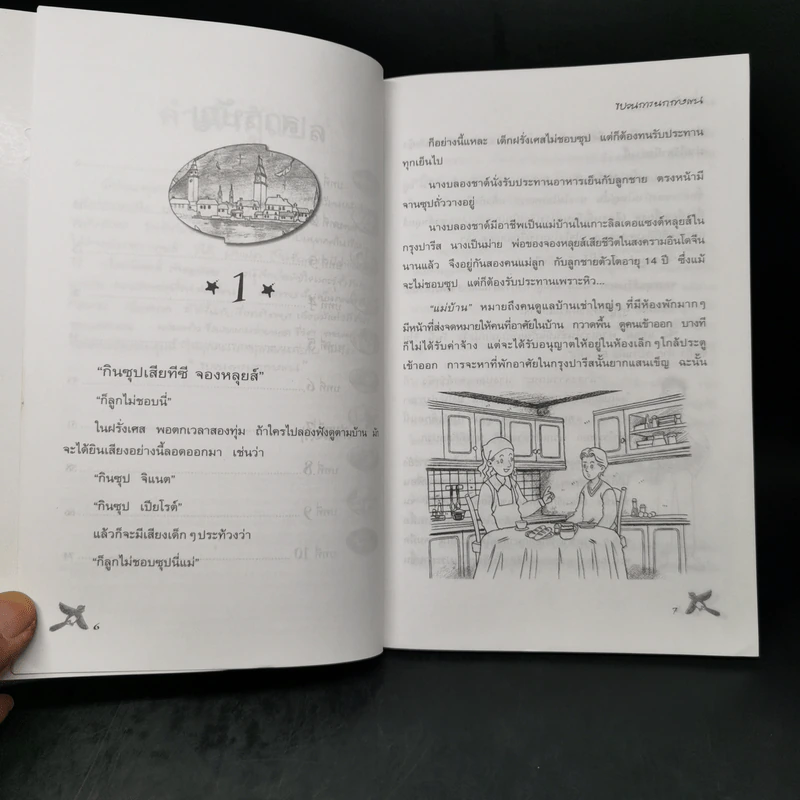 1
“กินซุปเสียทีซี จองหลุยส์”
“ก็ลูกไม่ชอบนี่”
ในฝรั่งเศส พอตกเวลาสองทุ่ม ถ้าใครไปลองฟังดูตามบ้าน มัก
จะได้ยินเสียงอย่างนี้ลอดออกมา เช่นว่า
“กินซุป จิแนต”
“กินซุป เปียโรต์”
แล้วก็จะมีเสียงเด็ก ๆ ประท้วงว่า
“ก็ลูกไม่ชอบซุปนี่แม่”
6
ก็อย่างนี้แหละ เด็กฝรั่งเศสไม่ชอบซุป แต่ก็ต้องทนรับประทาน
ทุกเย็นไป
นางบลองชาด์นั่งรับประทานอาหารเย็นกับลูกชาย ตรงหน้ามี
จานซุปถั่ววางอยู่
นางบลองชาด์มีอาชีพเป็นแม่บ้านในเกาะลิลเดอแซงต์หลุยส์ใน
กรุงปารีส นางเป็นม่าย พ่อของจองหลุยส์เสียชีวิตในสงครามอินโดจีน
นานแล้ว จึงอยู่กันสองคนแม่ลูก กับลูกชายตัวโตอายุ 14 ปี ซึ่งแม้
จะไม่ชอบซุป แต่ก็ต้องรับประทานเพราะหิว...
“แม่บ้าน” หมายถึงคนดูแลบ้านเช่าใหญ่ๆ ที่มีห้องพักมากๆ
มีหน้าที่ส่งจดหมายให้คนที่อาศัยในบ้าน กวาดพื้น ดูคนเข้าออก บางที
ก็ไม่ได้รับค่าจ้าง แต่จะได้รับอนุญาตให้อยู่ในห้องเล็กๆใกล้ประตู
เข้าออก การจะหาที่พักอาศัยในกรุงปารีสนั้นยากแสนเข็ญ ฉะนั้น
7